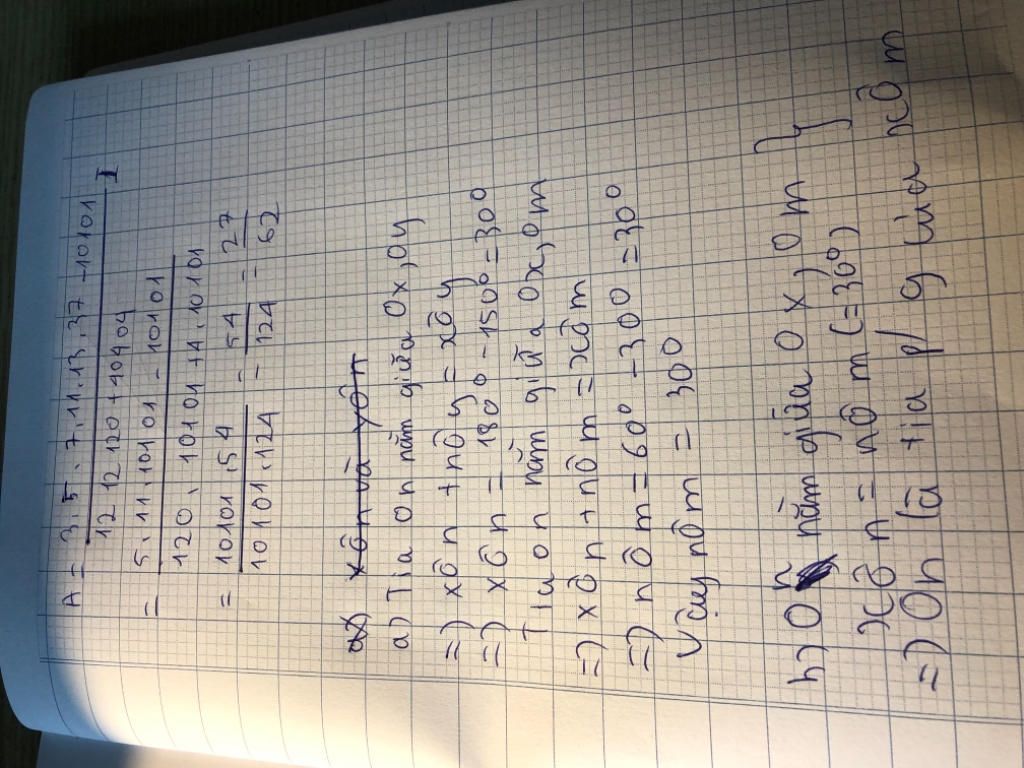 A = 3.5.7.11.13.37 - 10101
12 12 120 + 40404
= 5.11.10101 - 10101
120.10101 + 4.10101
= 10101.54 = 54 = 27
10101.124 = 124 = 62
xÔn và yÔn
a) Tia on nằm giữa Ox, Oy
=) xÔn + nÔy = xÔy
=) xÔn = 180° - 150° = 30°
Tia on nằm giữa Ox, Om
=) xÔn + nÔm = xÔm
=) nÔm = 60° - 300 = 30°
vậy nÔm = 300
b) On nằm giữa Ox, Om }
xÔn = nÔm (= 30°)
=) On là tia p/g của xÔm